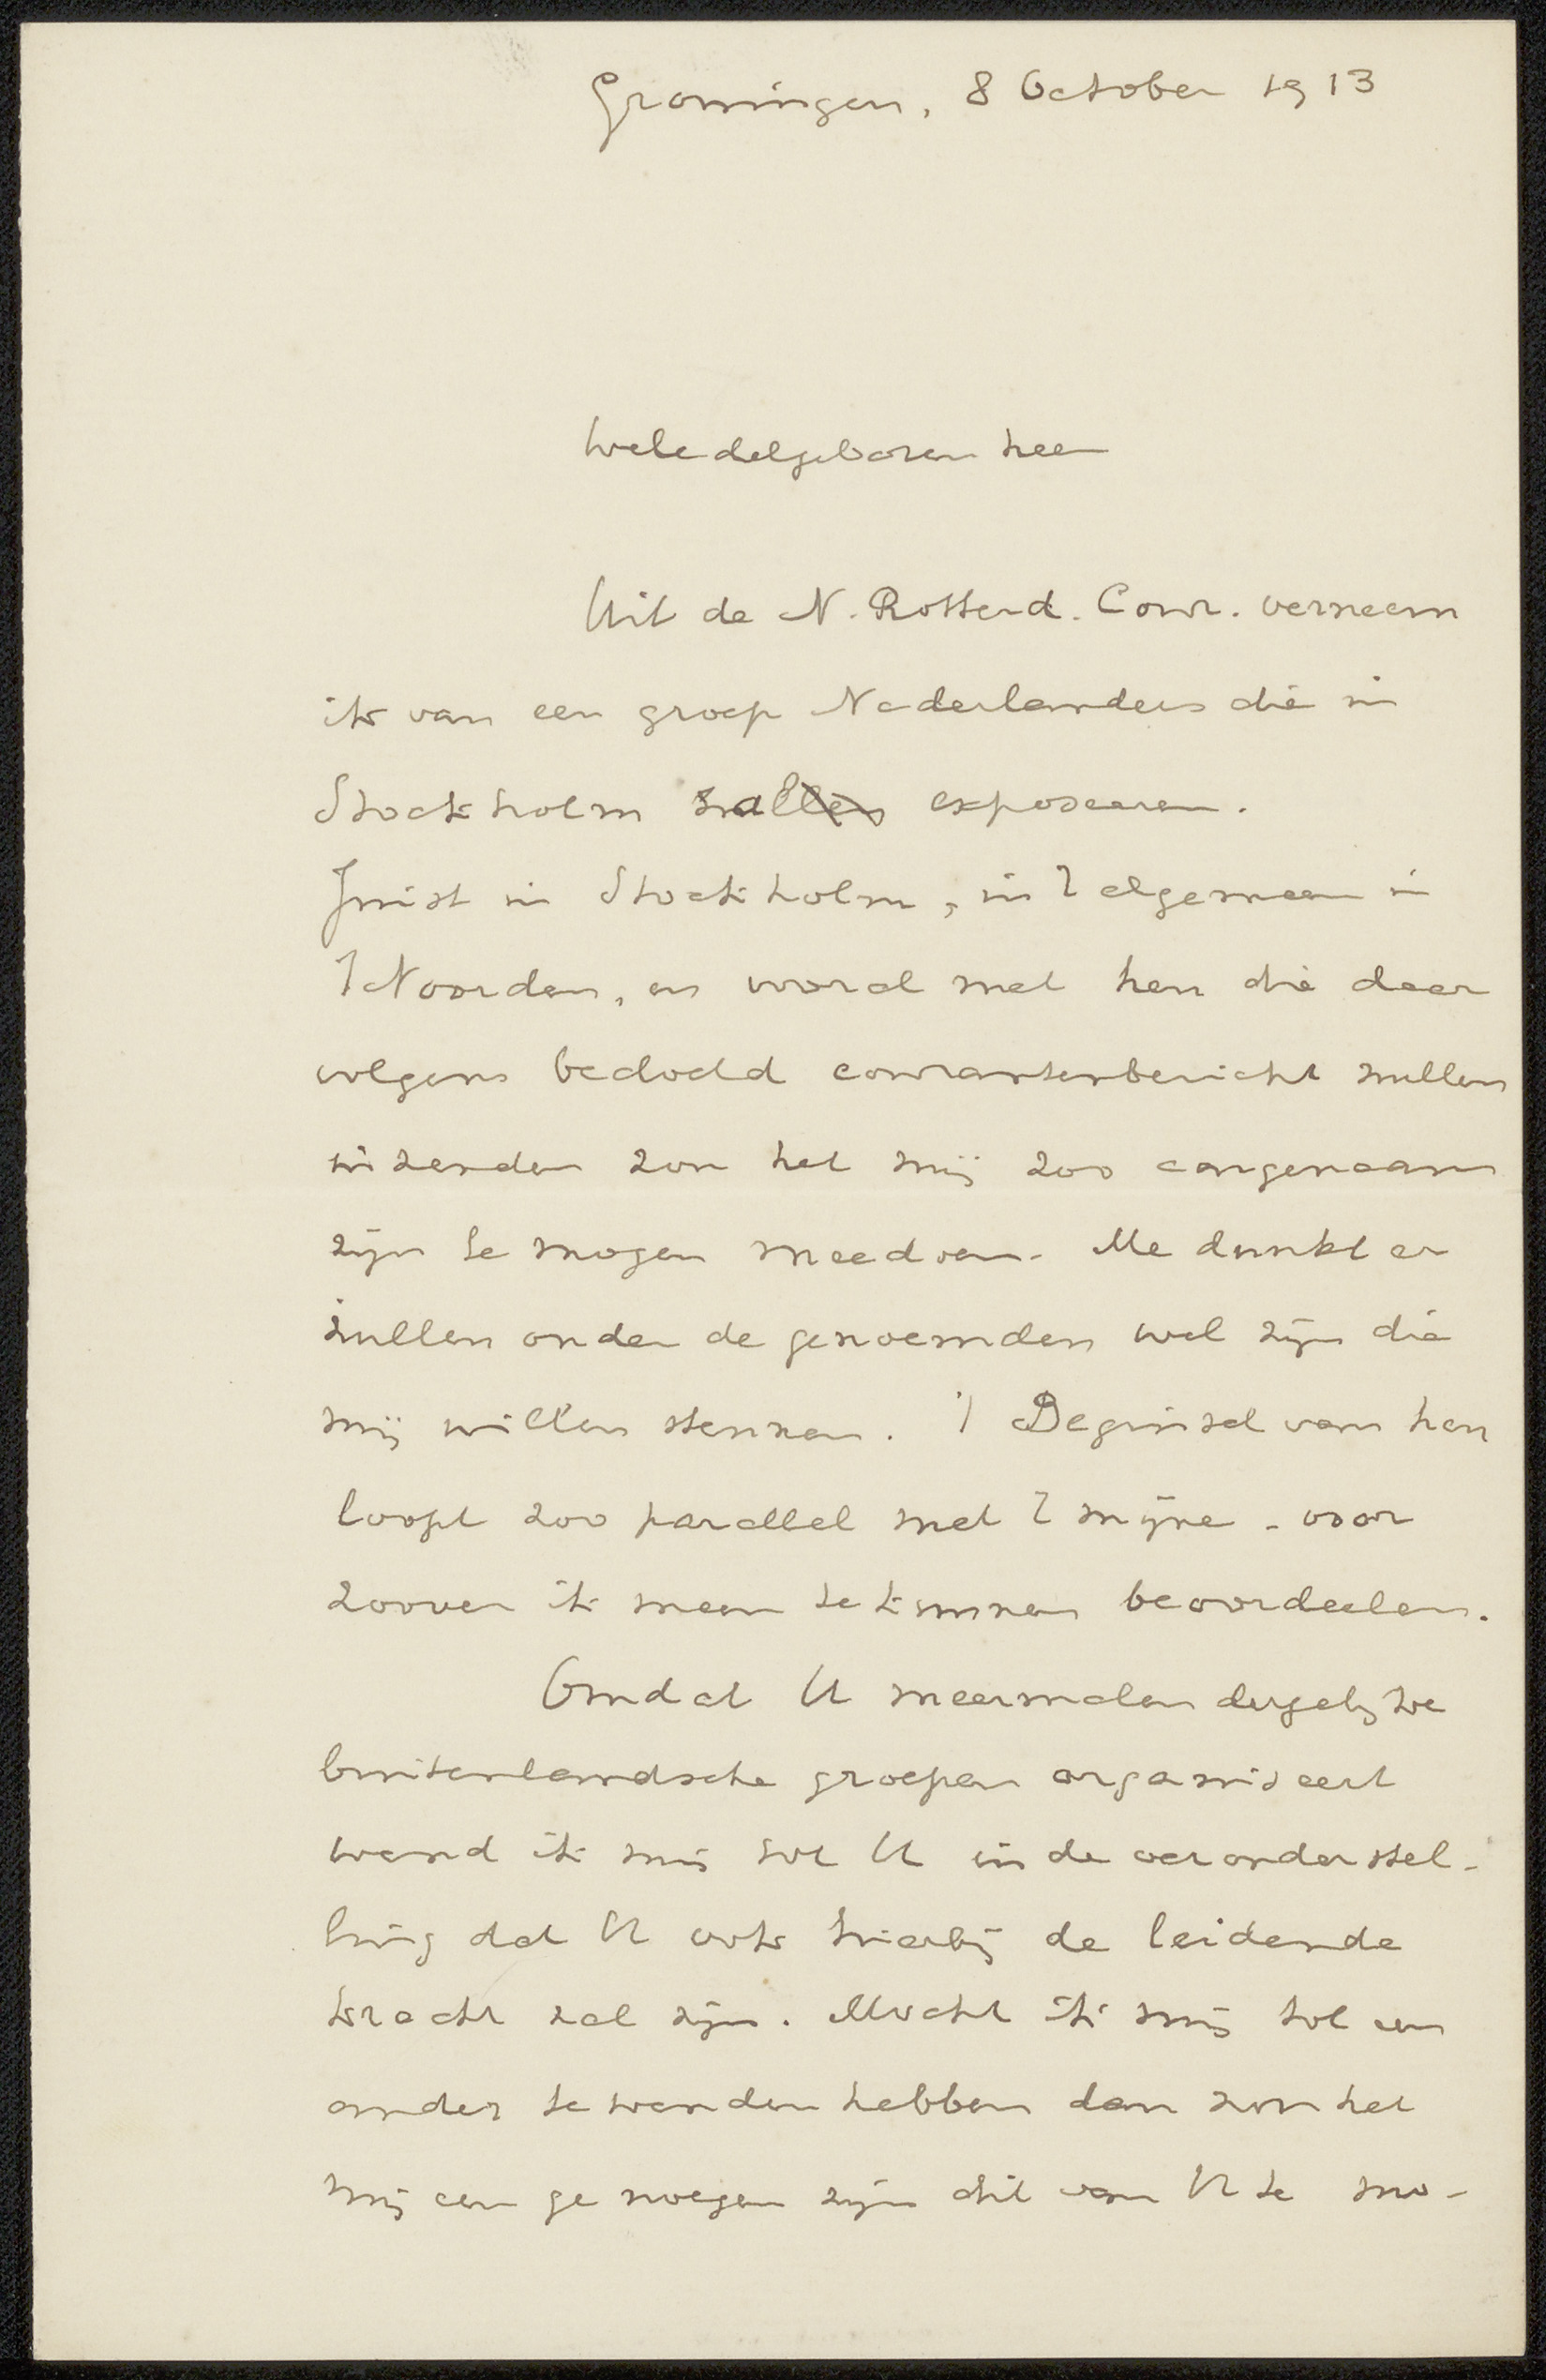 Groningen, 8 October 1913
Weledelgeboren heer
Uit de N. Rotterd. Cour. verneem
ik van een groep Nederlanders die in
Stockholm zal exposeeren.
Juist in Stockholm, in 't algemeen in
't Noorden, en vooral met hen die daar
volgens bedoeld courantenbericht zullen
inzenden zou het mij zoo aangenaam
zijn te mogen meedoen. Me dunkt er
zullen onder de genoemden wel zijn die
mij willen steunen. 't Beginsel van hen
loopt zoo parallel met 't mijne - voor
zoover ik meen te kunnen beoordeelen.
Omdat U meermalen dergelijke
buitenlandsche groepen organiseert
wend ik mij tot U in de veronderstel-
ling dat U ook hierbij de leidende
kracht zal zijn. Mocht ik mij tot een
ander te wenden hebben dan zou het
mij een genoegen zijn dit van U te mo-